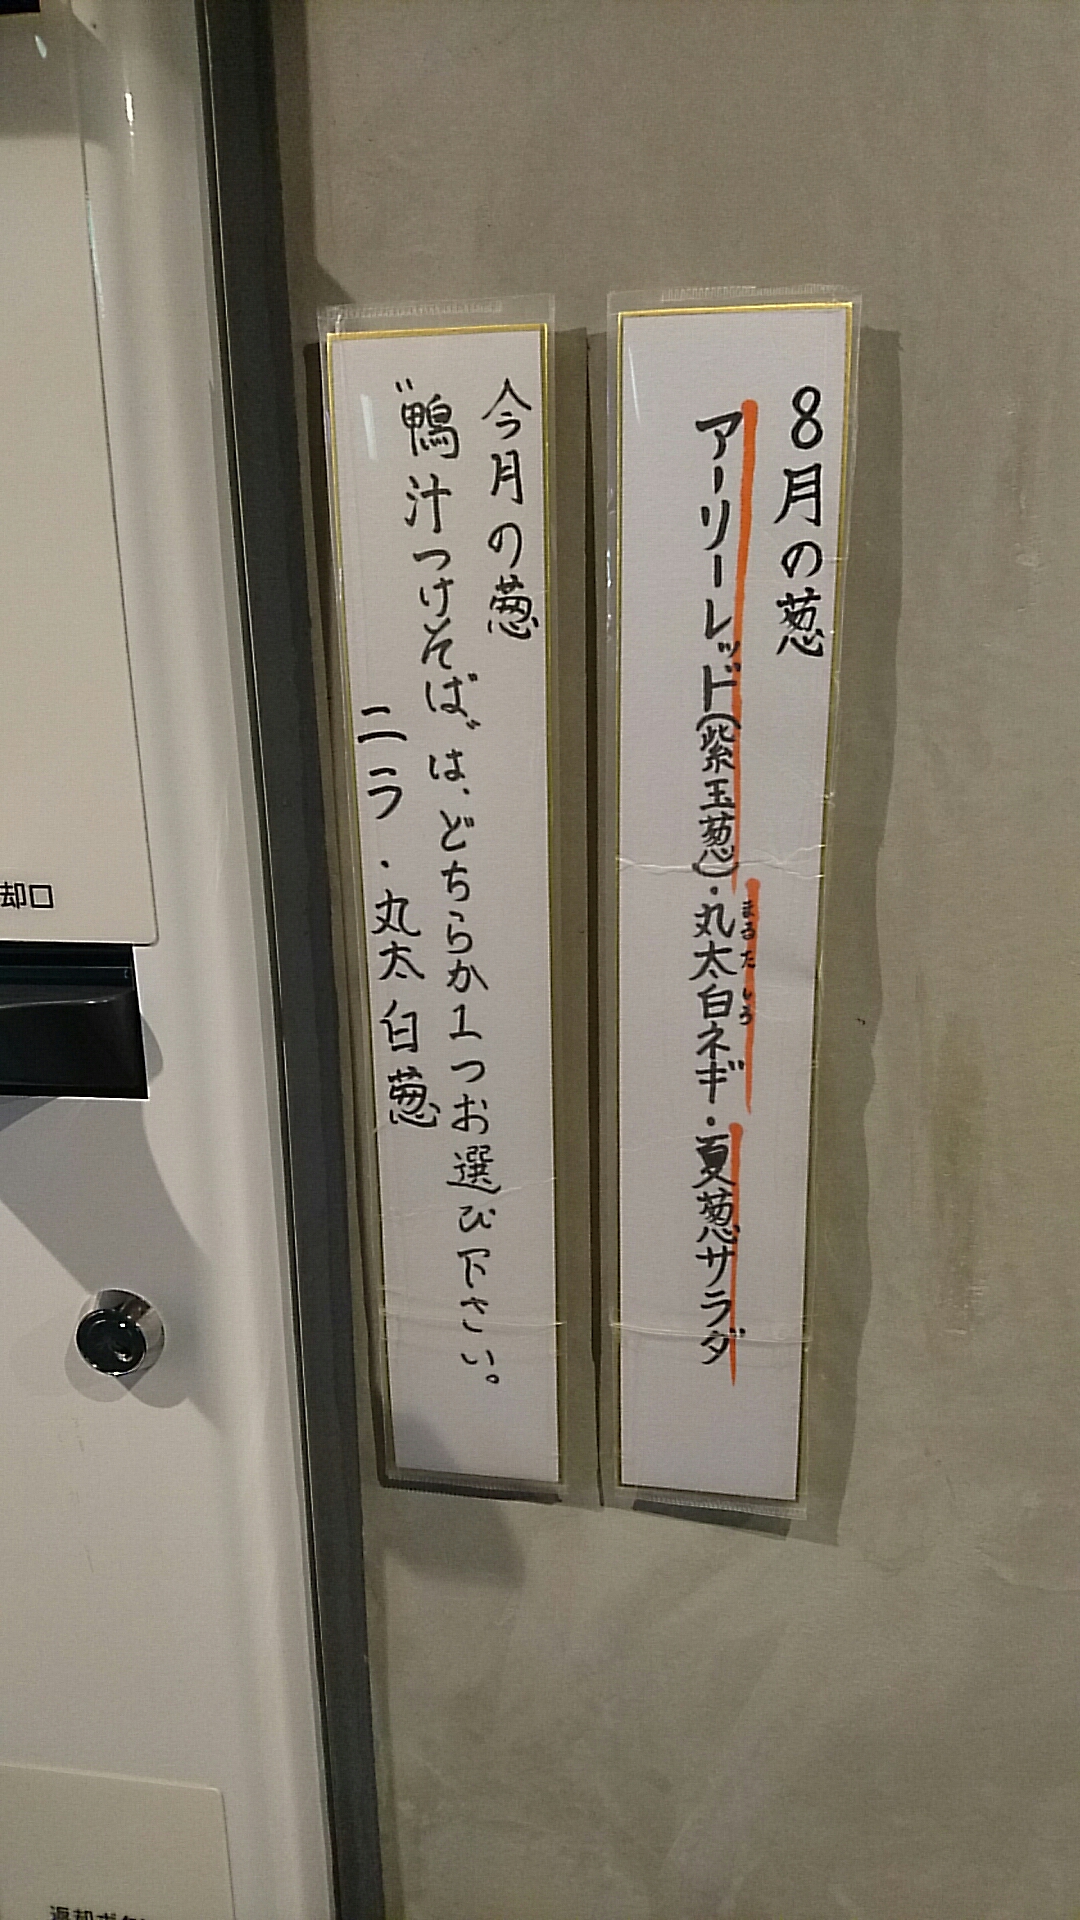 8月の葱
アーリーレッド(紫玉葱)・丸太白ネギ・夏葱サラダ
まるた しろ
今月の葱
"鴨汁つけそば"は、どちらか1つお選び下さい。
ニラ・丸太白葱
却口